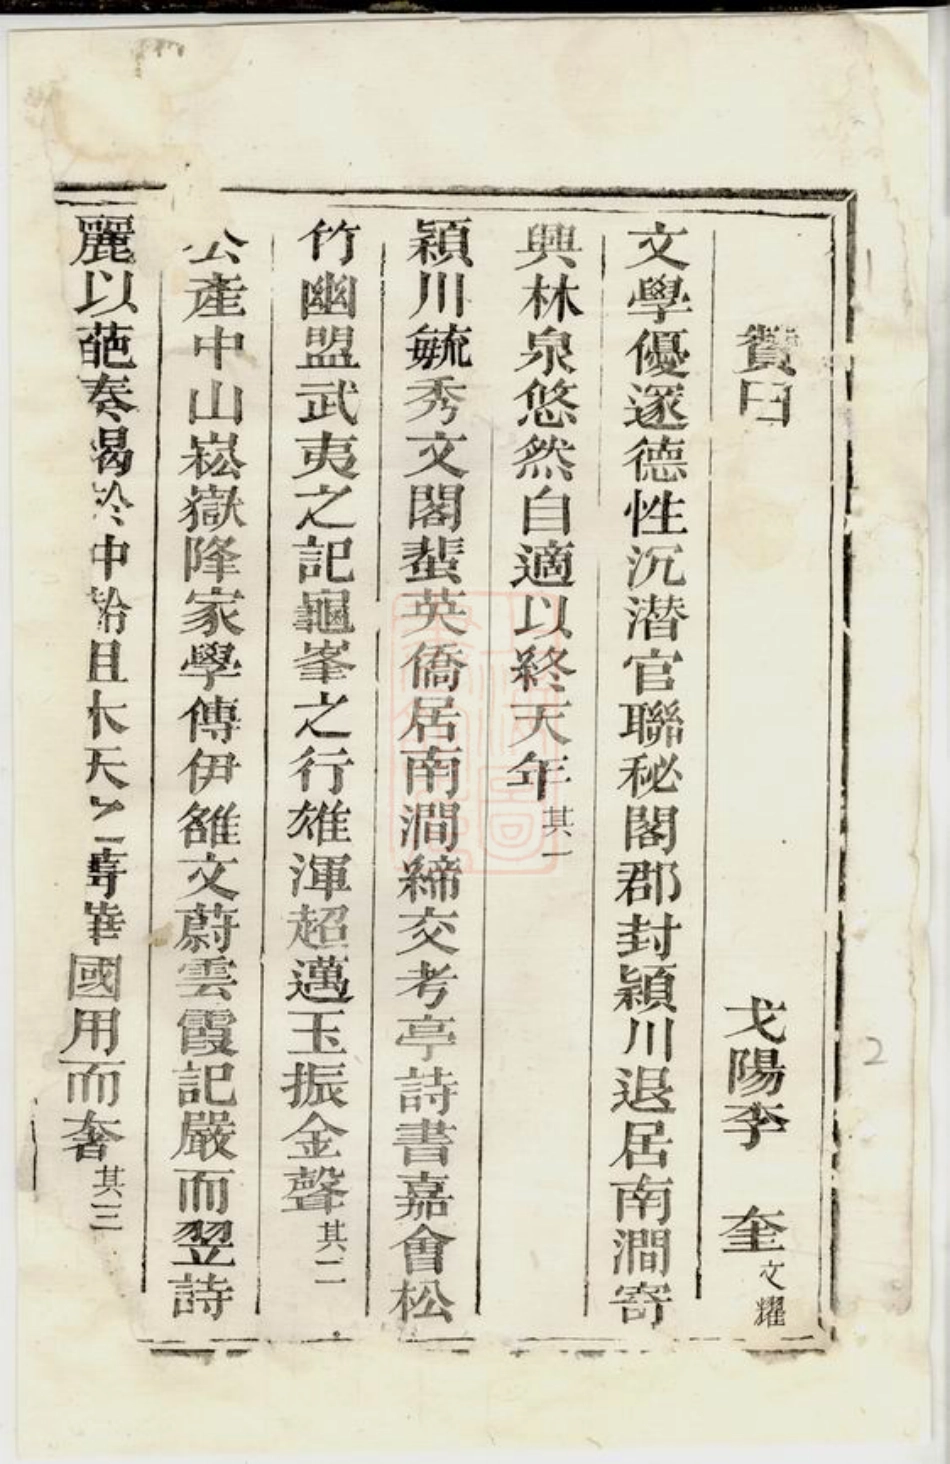 贊曰　戈陽李　奎文耀
文學優邃德性沉潜官聯秘閣郡封潁川退居南澗寄
興林泉悠然自適以終天年其一
潁川毓秀文閣蜚英僑居南澗締交考亭詩書嘉會松
竹幽盟武夷之記龜峯之行雄渾超邁玉振金聲其二
公產中山崧嶽降家學傳伊雒文蔚雲霞記嚴而翌詩
麗以葩奏於中且木天之華國用而奢其三
2